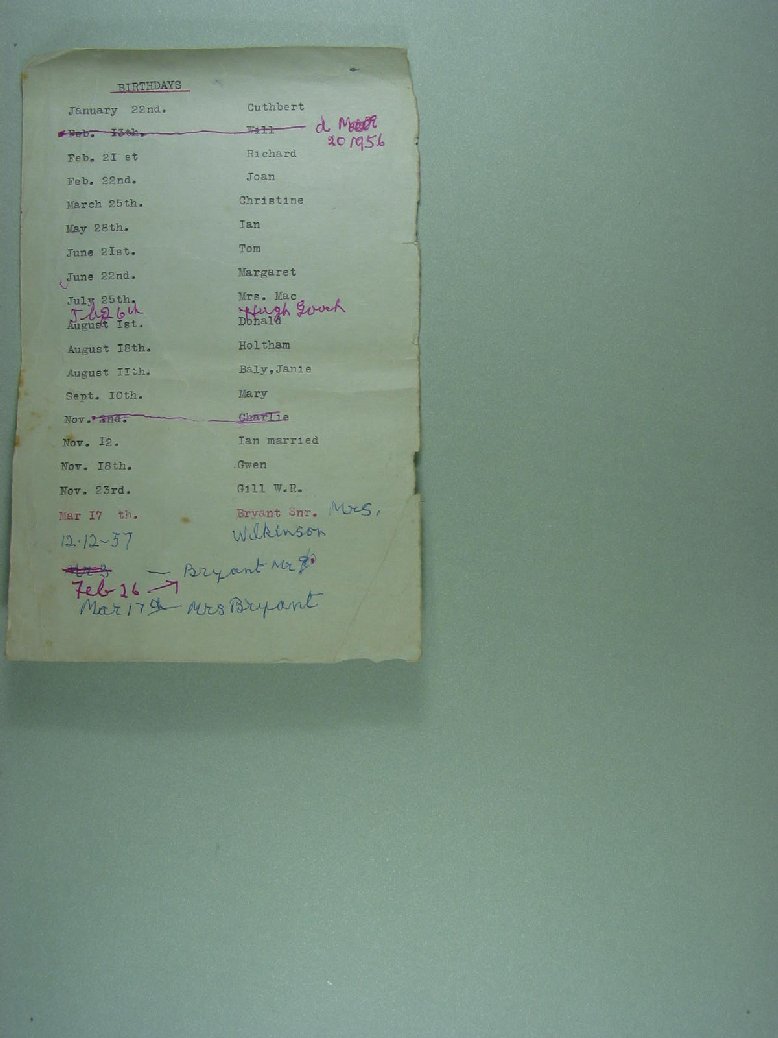 BIRTHDAYS
January 22nd. Cuthbert
Feb. I3th. Will d
20 1956
Feb. 2I st Richard
Feb. 22nd. Joan
March 25th. Christine
May 28th. Ian
June 2Ist. Tom
June 22nd. Margaret
July 25th. Mrs. Mac
26th Hugh Gooch
August Ist. Donald
August I8th. Holtham
August IIth. Baly,Janie
Sept. I0th. Mary
Nov. 2nd. Charlie
Nov. I2. Ian married
Nov. I8th. Gwen
Nov. 23rd. Gill W.R.
Mar I7 th. Bryant Snr. Mrs.
12.12~57 Wilkinson
— Bryant Mr
Feb 26
Mar 17th — Mrs Bryant